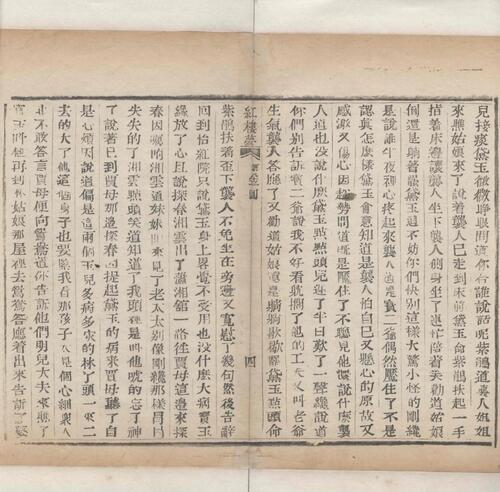 兒接痰黛玉微微睜眼問道你和誰說話呢紫鵑道襲人姐姐
來瞧姑娘來了說着襲人已走到床前黛玉命紫鵑扶起一手
指着床邊讓襲人坐下襲人側身坐了連忙陪着笑勸道姑娘
倒還是躺着罷黛玉道不妨你們快別這樣大驚小怪的剛纔
是說誰半夜裡心疼起來襲人道是寶二爺偶然魘住了不是
認真怎麼樣黛玉會意知道是襲人怕自己又懸心的原故又
感激又傷心因趁勢問道既是魘住了不聽見他還說什麽襲
人道也沒說什麽黛玉點點頭兒遲了半日歎了一聲纔說道
你們別告訴寶二爺說我不好看躭擱了他的工夫又叫老爺
生氣襲人答應了又勸道姑娘還是躺躺歇歇罷黛玉點頭命
紅樓夢 回 四
紫鵑扶着歪下襲人不免坐在旁邊又寬慰了幾句然後告辭
回到怡紅院只說黛玉身上畧覺不受用也沒什麽大病寶玉
纔放了心且說探春湘雲出了瀟湘舘一路往賈母這邊來探
春因囑咐湘雲道妹妹回來見了老太太別像剛纔那樣冒冒
失失的了湘雲點頭笑道知道了我頭裡是叫他唬的忘了神
了說着已到賈母那邊探春因提起黛玉的病來賈母聽了自
是心煩因說道偏是這兩個玉兒多病多災的林丫頭一來二
去的大了他這個身子也要緊我看那孩子太是個心細衆人
也不敢答言賈母便向鴛鴦道你告訴他們明兒大夫來瞧了
寶玉叫他再到林姑娘那屋裡去鴛鴦答應着出來告訴了婆